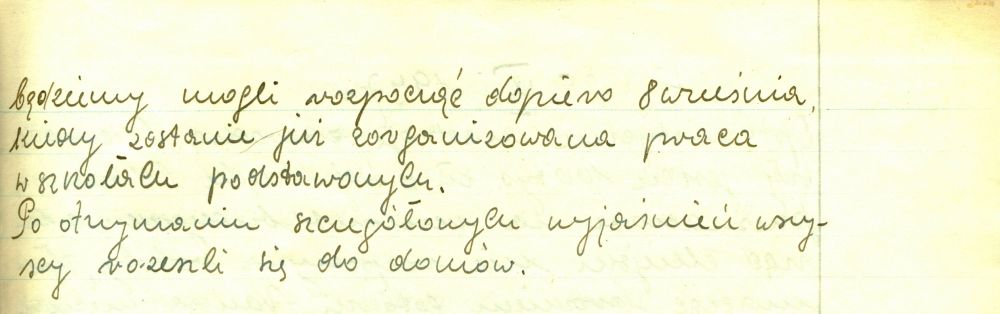 będziemy mogli rozpocząć dopiero 8 września,
kiedy zostanie już zorganizowana praca
w szkołach podstawowych.
Po otrzymaniu szczegółowych wyjaśnień wszy-
scy rozeszli się do domów.